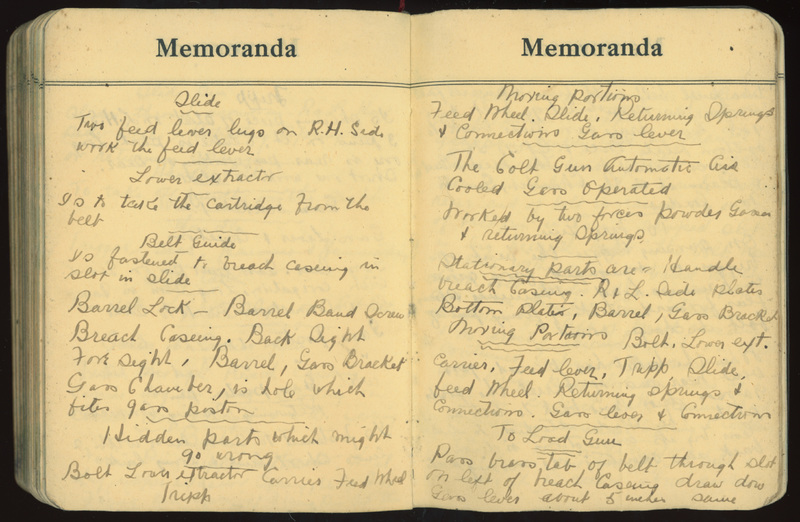 Memoranda
Slide
Two feed lever lugs on R.H. Side
work the feed lever
Lower extractor
Is to take the cartridge from the
belt
Belt Guide
Is fastened to breach caseing in
slot in slide
Barrel Lock - Barrel Band Screw
Breach Caseing. Back Sight
Fore Sight, Barrel, Gass Bracket
Gass Chamber, is hole which
fites gass poston
Hidden parts which might
go wrong
Bolt Lower extractor Carrier Feed Wheel
Tripp
Memoranda
Moving Portions
Feed Wheel. Slide, Returning Springs
& Connections Gass lever
The Colt Gun Automatic Air
Cooled Gass Operated
Worked by two forces powder Gasses
& returning Springs
Stationary parts are = Handle
breach Caseing. R & L. Side plates
Bottom Plates, Barrel, Gass Bracket
Moving Portions Bolt. Lower ext.
Carrier, Feed lever, Tripp Slide,
feed Wheel. Returning springs &
Connections. Gass lever & Connections
To Load Gun
Pass brass tab of belt through slot
on left of breach Caseing draw dow
Gass lever about 5 inches same